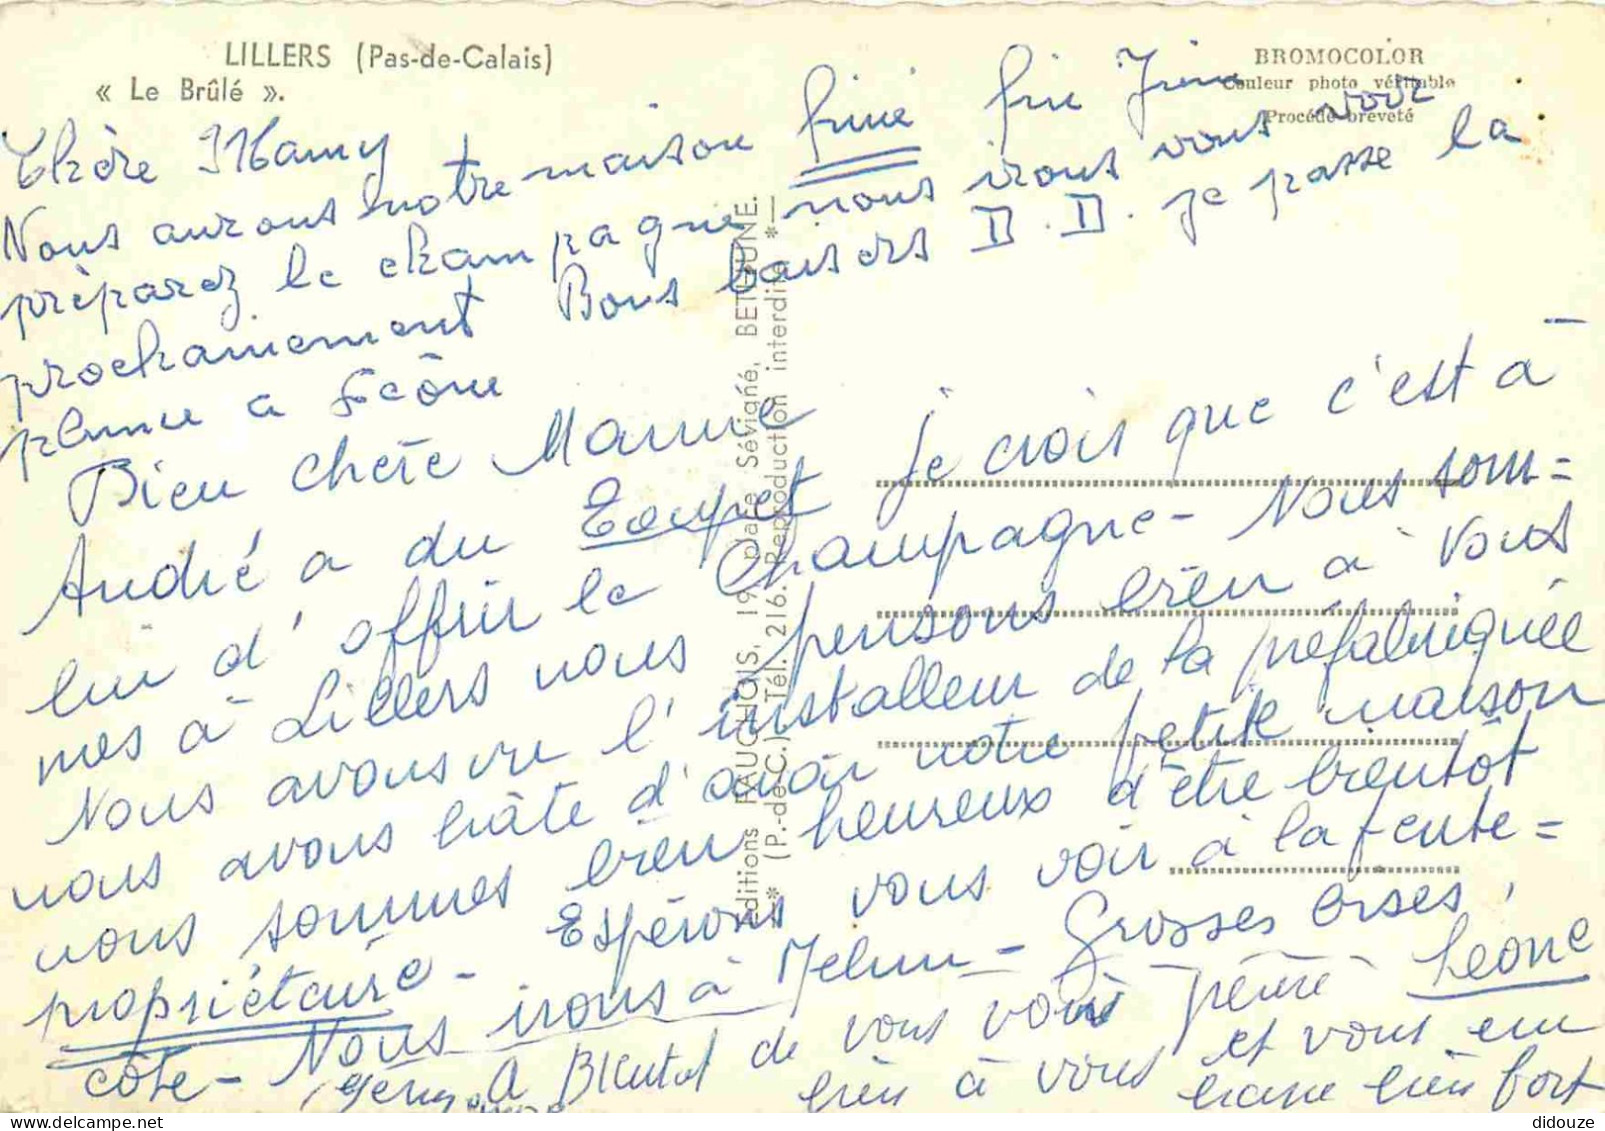 LILLERS (Pas-de-Calais)
« Le Brûlé ».
BROMOCOLOR
Couleur photo véritable
Procédé breveté
Chère Mamy
Nous aurons notre maison finie fin Juin
préparez le champagne nous irons vous voir
prochainement Bons baisers D.D. je passe la
plume à Léone
Bien chère Mamie
André a du Toupet je crois que c'est à
lui d'offrir le Champagne - Nous som=
mes à Lillers nous pensons bien à vous
Nous avons vu l'installeur de la préfabriquée
nous avons hâte d'avoir notre petite maison
nous sommes bien heureux d'être bientôt
propriétaire - Espérons vous voir à la Pente=
côte - Nous irons à Melun - Grosses bises,
Léone
A Bientot de vous voir
bien à vous et vous em
brasse bien fort
Editions RAUCHONS, 19, place Sévigné, BETHUNE.
* (P.-de-C.) Tél. 216. Reproduction interdite *
didouze